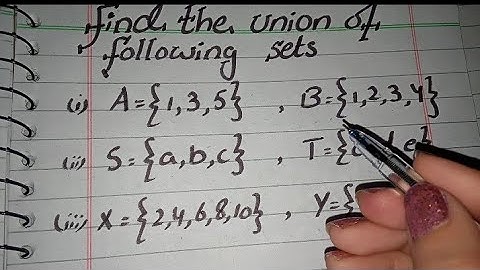 find the union of
following sets
(i) A={1,3,5} , B={1,2,3,4}
(ii) S={a,b,c} , T={ e}
(iii) X={2,4,6,8,10} , Y={